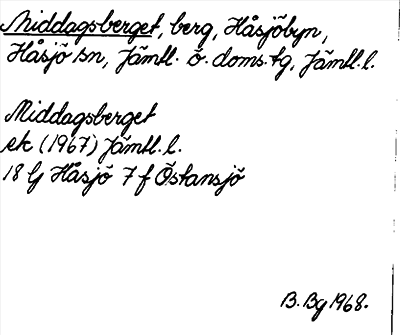 Middagsberget, berg, Håsjöbyn,
Håsjö sn, Jämtl. ö. doms.tg, Jämtl.l.
Middagsberget
ek (1967) Jämtl.l.
18 G Håsjö 7 f Östansjö
B. Bg 1968.